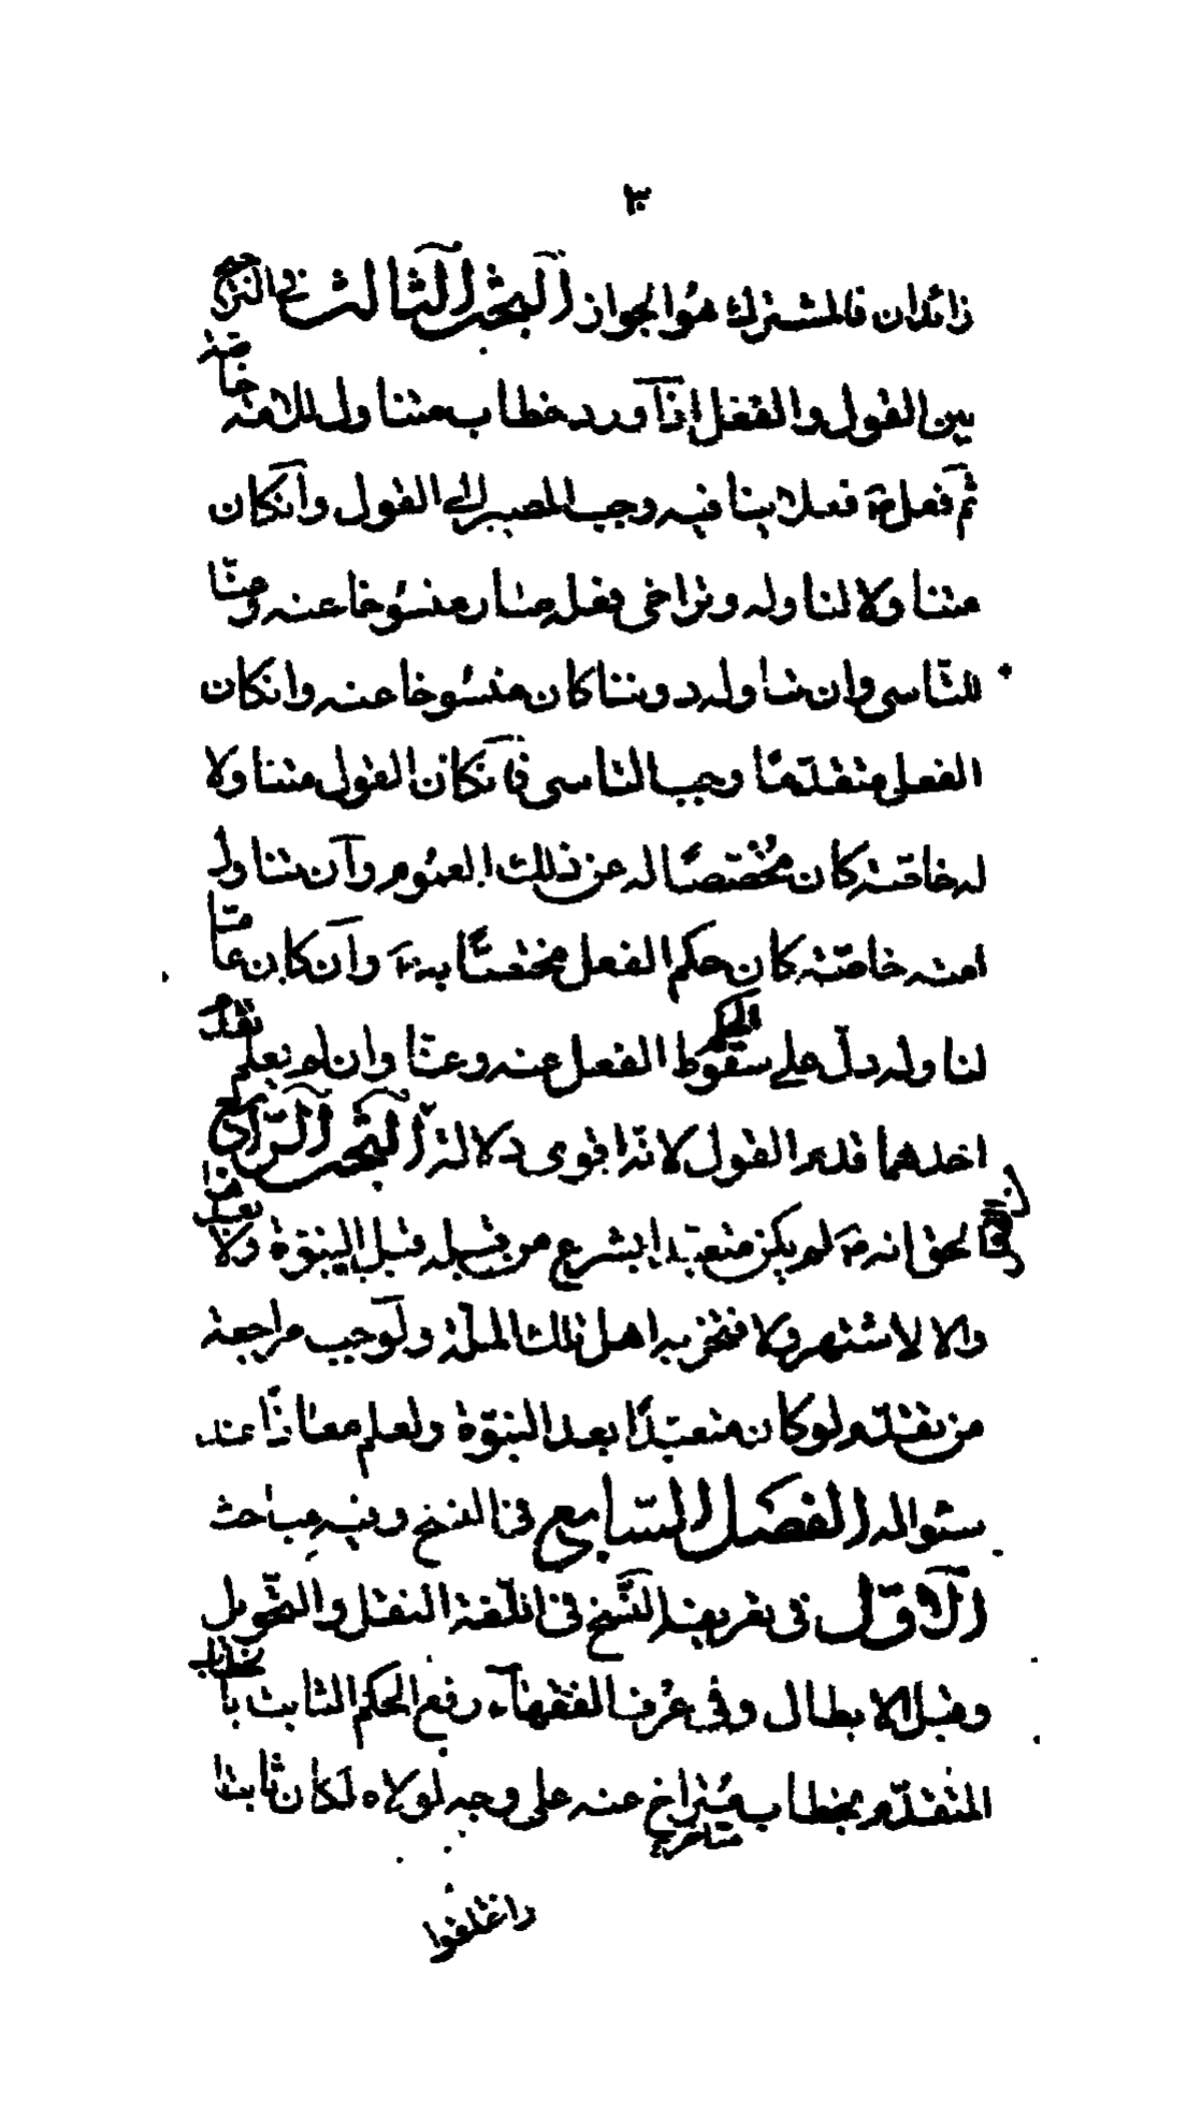 ٣٠
زائدان فالمشترك هو الجواز البحث الثالث في الترجيح
بين القول والفعل اذا ورد خطاب متناول للامة خاصة
ثم فعل ص فعلا ينافيه وجب المصير الى القول وان كان
متناولا لنا وله وتراخى فعله صار منسوخا عنه وعنا
للتاسى وان تناوله دوننا كان منسوخا عنه وان كان
الفعل متقدما وجب التاسى فان كان القول متناولا
له خاصة كان مخصصا له عن ذلك العموم وان تناول
امته خاصة كان حكم الفعل مختصا به ص وان كان عاما
لنا وله دل على سقوط الحكم الفعل عنه وعنا وان لم يعلم تقدم
احدهما قدم القول لانه اقوى دلالة البحث الرابع
الحق انه ص لم يكن متعبدا بشرع من قبله قبل النبوة ولا بعدها
والا لاشتهر ولافتخر به اهل تلك الملة ولوجب مراجعة
من تقدم لو كان متعبدا بعد النبوة ولعلم معاذا عند
سئواله الفصل السابع في النسخ وفيه مباحث
الاول في تعريفه النسخ في اللغة النقل والتحويل
وقيل الابطال وفي عرف الفقهاء رفع الحكم الثابت بالخطاب
المتقدم بخطاب متراخ عنه على وجه لولاه لكان ثابتا
متاخر
واختلفوا